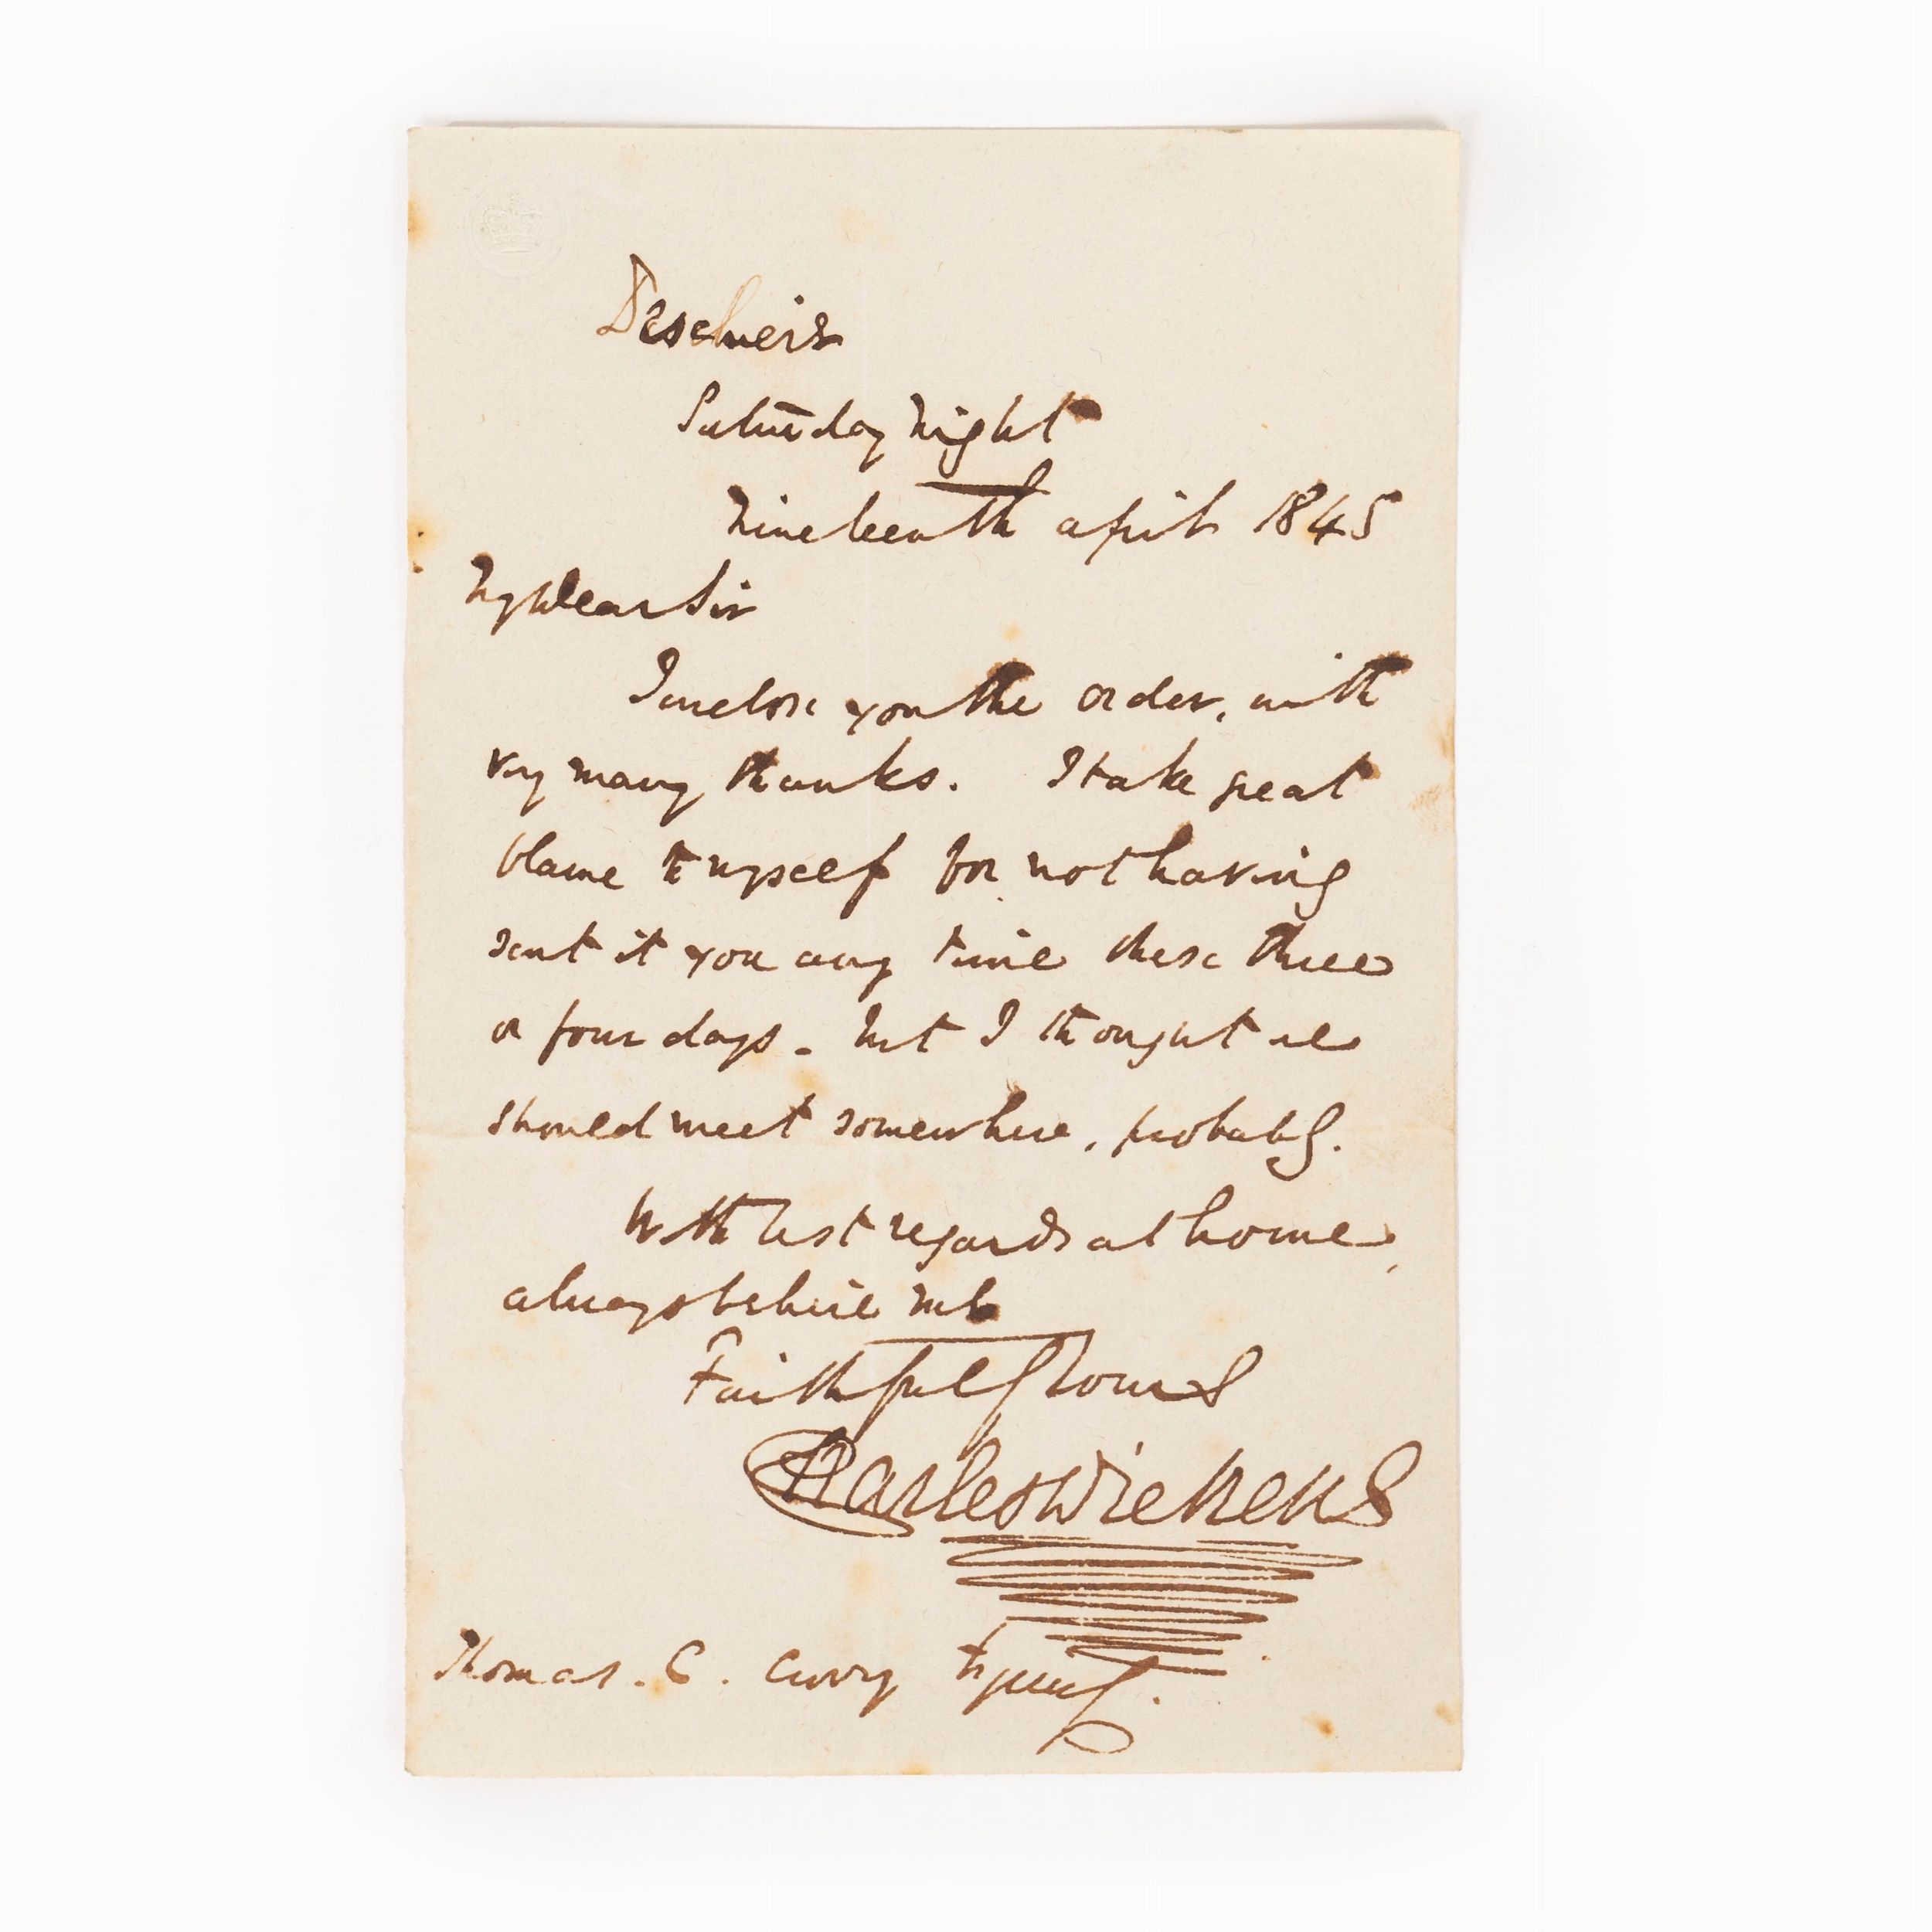 Peschiere
Saturday Night
Nineteenth April 1845
My Dear Sir
I enclose you the order, with
very many thanks. I take great
blame to myself for not having
sent it you any time these three
or four days. But I thought we
should meet somewhere, probably.
With best regards at home,
always believe me
Faithfully Yours
Charles Dickens
Thomas. C. Curry Esquire.